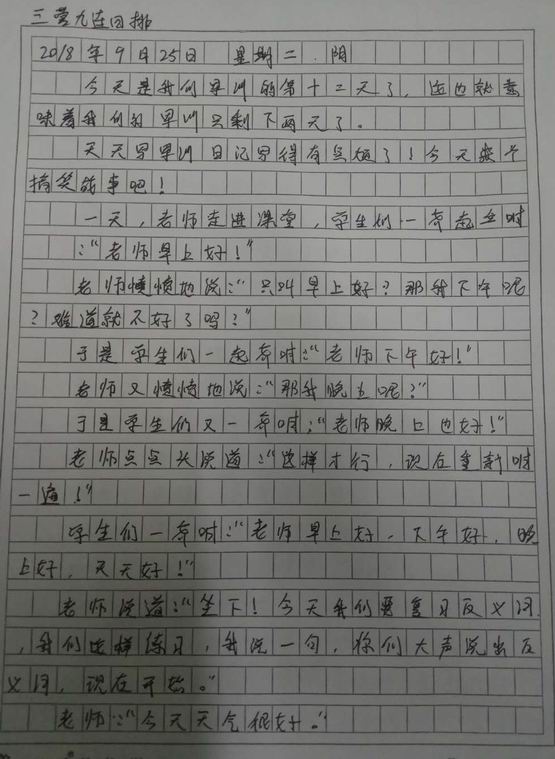 三营九连四排
2018年9月25日 星期二 阴
今天是我们早训的第十二天了，这也就意
味着我们的早训只剩下两天了。
天天写早训日记写得有点烦了！今天换个
搞笑故事吧！
一天，老师走进课堂，学生们一齐起立时
：“老师早上好！”
老师愤愤地说：“只叫早上好？那我下午呢
？难道就不好了吗？”
于是学生们一起齐时：“老师下午好！”
老师又愤愤地说：“那我晚上呢？”
于是学生们又一齐时：“老师晚上也好！”
老师点点头说道：“这样才行，现在重新时
一遍！”
学生们一齐时：“老师早上好，下午好，晚
上好，天天好！”
老师说道：“坐下！今天我们要复习反义词
，我们这样练习，我说一句，你们大声说出反
义词，现在开始。”
老师：“今天天气很好。”